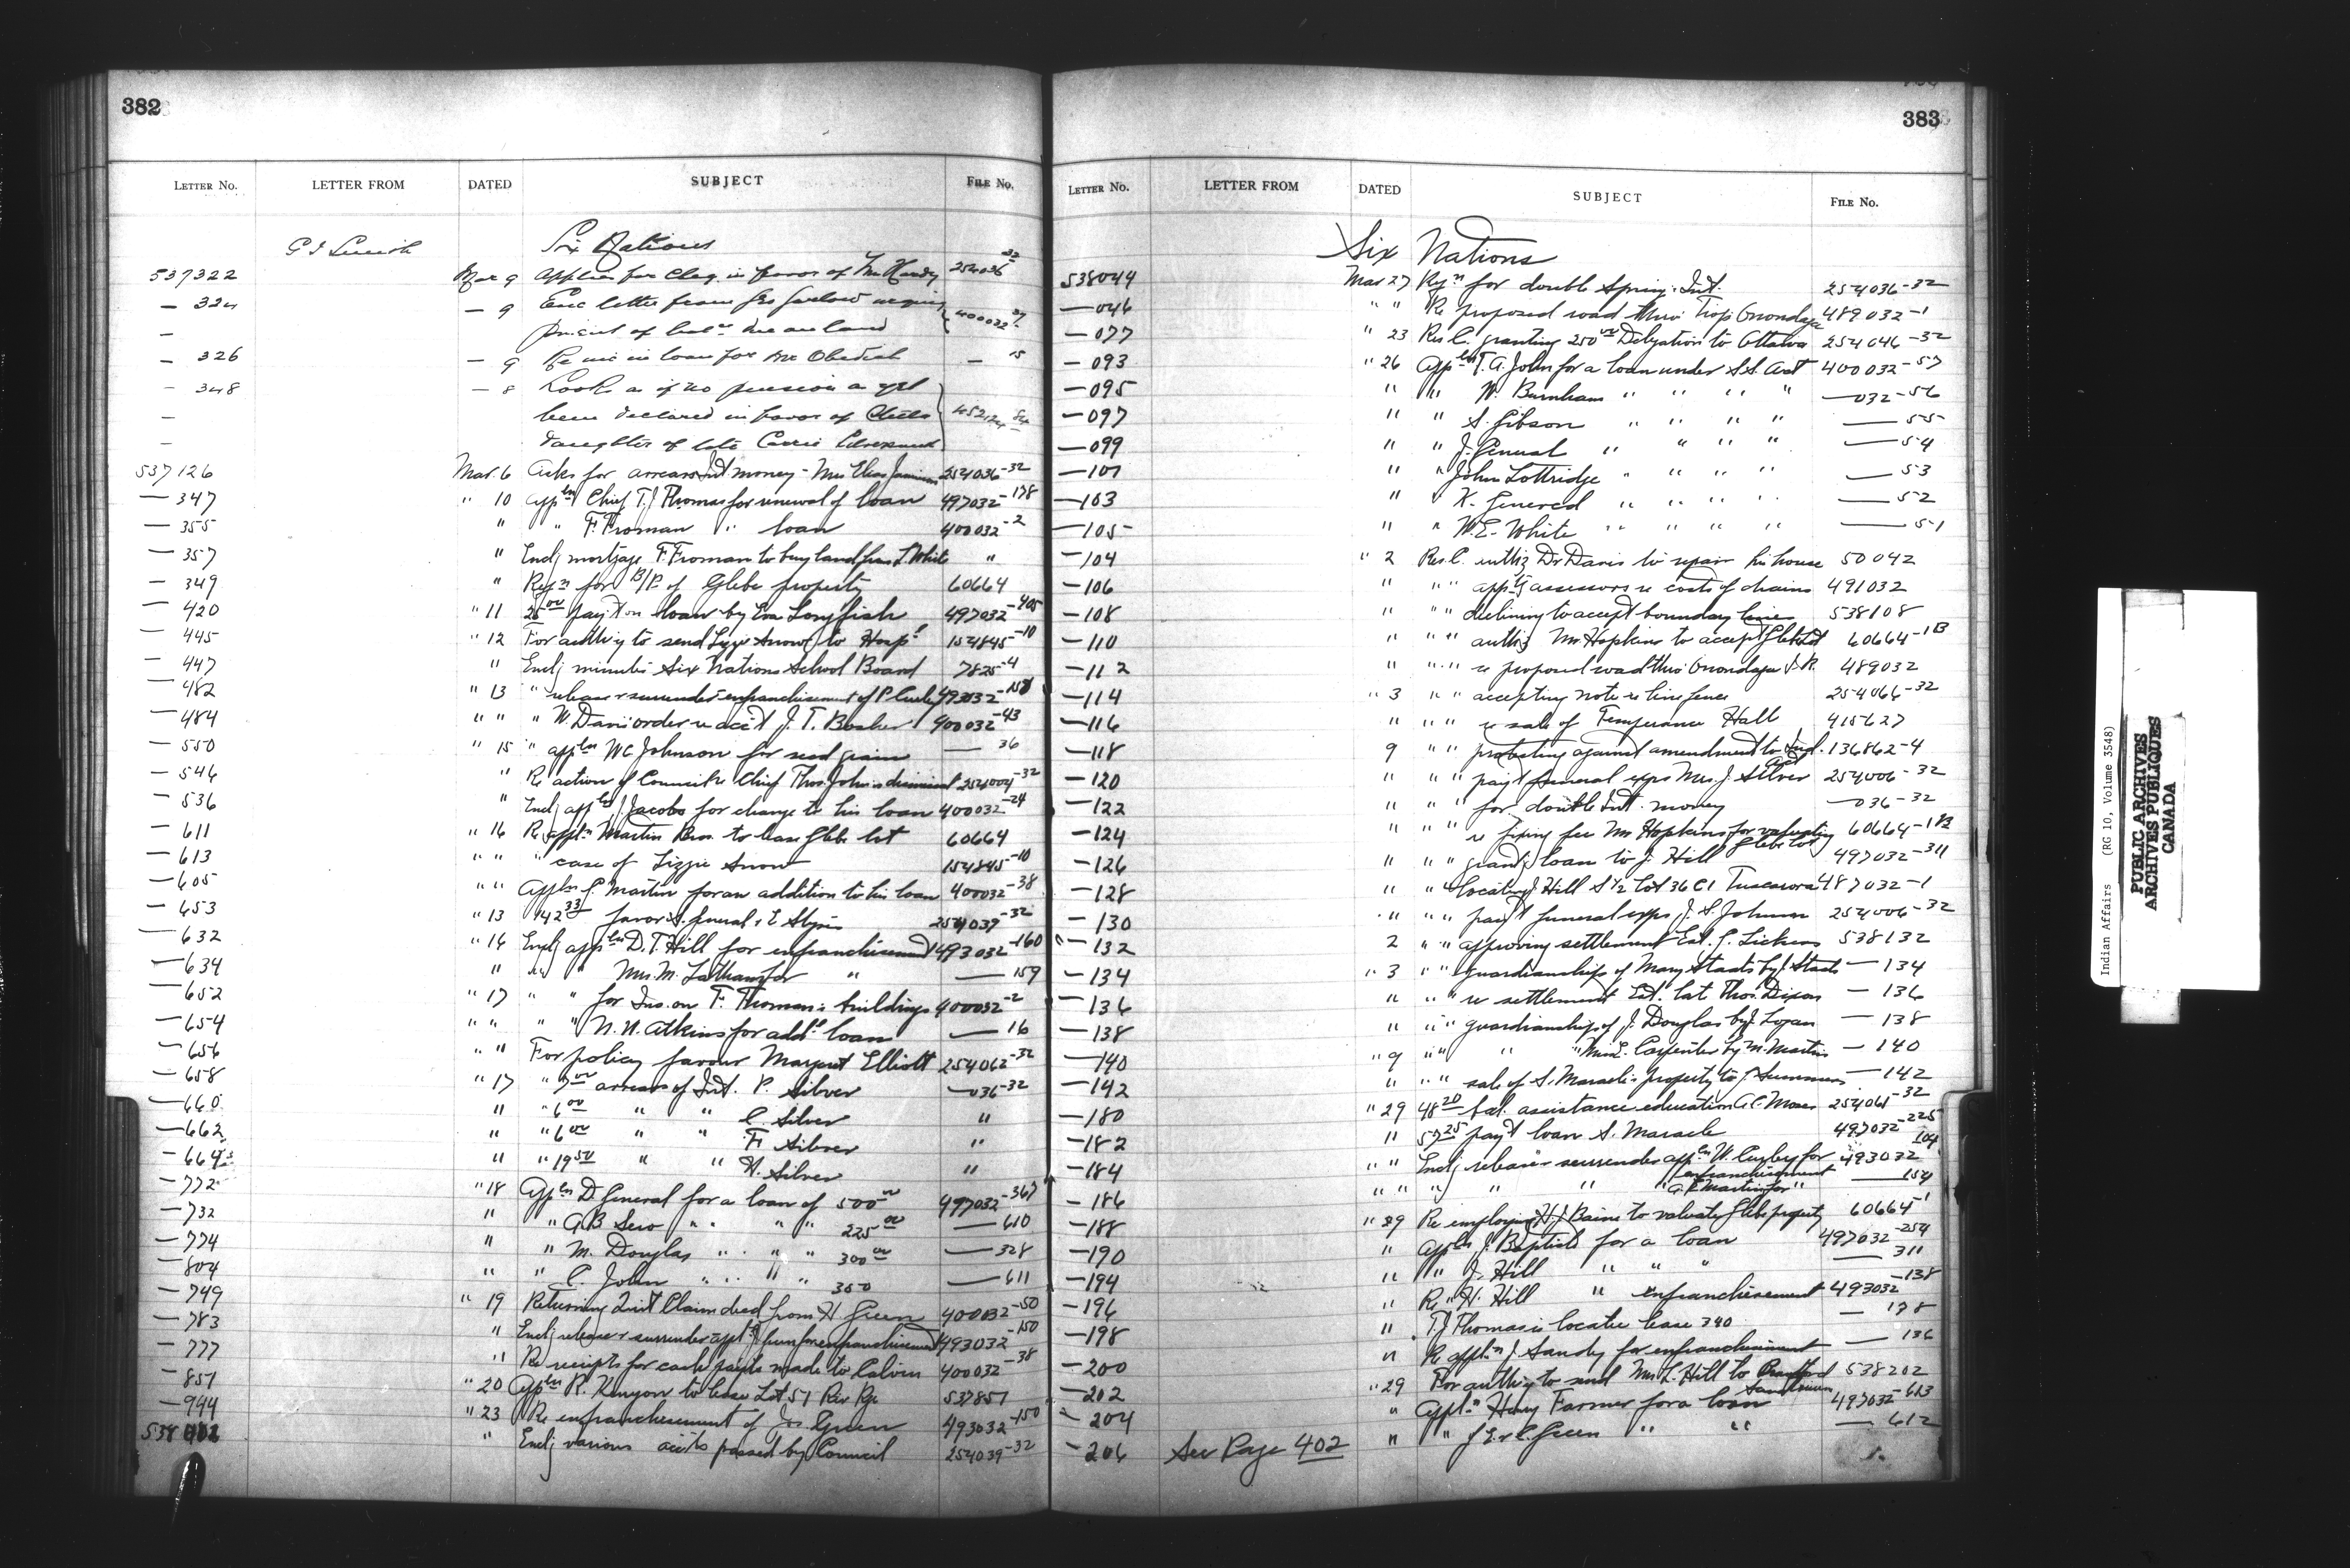 382
LETTER No. LETTER FROM DATED SUBJECT FILE No.
Six Nations
537322 Mar 9 in favor of 254036-32
— 324 — 9 Enc letter from
— 400032
— 326 — 9 Re loan for
— 348 — 8 Looks as if no pension as yet
— been declared in favor of
— daughter of late Carrie
537126 Mar. 6 Asks for arrears Int money - Mrs Elias Jamieson 254036-32
— 347 " 10 Appln Chief T.J Thomas for renewal of loan 497032-178
— 355 " " F. Froman " loan 400032-2
— 357 " Encl'g mortgage F Froman to buy land from White "
— 349 " Reqn for B/P. of Glebe property 60664
— 420 " 11 25 00 pay't on loan by Eva Longfish 497032-405
— 445 " 12 For auth'y to send Lizzie Snow to Hosp'l 154845-10
— 447 " Encl'g minutes Six Nations School Board 7825-4
— 482 " 13 " release & surrender enfranchisement of P. 493032
— 484 " " " W. Davis order re acc't J. T. Bosher 400032-43
— 550 " 15 " appln W C Johnson for seed grain — 36
— 546 " Re action of Council re Chief Thos John's dismissal 254004-32
— 536 " Encl'g appln J Jacobs for change to his loan 400032-24
— 611 " 16 Re appl'n Martin Bros. to lease Glebe lot 60664
— 613 " " " case of Lizzie Snow 154845-10
— 605 " " Appln P. Martin for an addition to his loan 400032-38
— 653 " 13 $42 33 favor S. General & E 254039-32
— 632 " 16 Encl'g appln D. T. Hill for enfranchisement 493032-160
— 634 " " " Mrs. M. Latham for " — 159
— 652 " 17 " " for Ins. on F. Thomas's buildings 400032-2
— 654 " " " " N. W. Atkins for add'l loan — 16
— 656 " " For policy favour Margaret Elliott 254062-32
— 658 " 17 " 7 00 arrears of Int. P. Silver — 036-32
— 660 " " 6 00 " " C. Silver "
— 662 " " 6 00 " " F. Silver "
— 664 " " 19 50 " " H. Silver "
— 772 " 18 Appln D. General for a loan of 500 00 497032-367
— 732 " " G B Sero " " " " 225 00 — 610
— 774 " " M. Douglas " " " " 300 00 — 328
— 804 " " C. John " " " " 350 — 611
— 749 " 19 Returning Quit Claim deed from H Green 400032-50
— 783 " Encl'g release & surrender appl'n J Green for enfranchisement 493032-150
— 777 " Re receipts for cash pay'ts made to Calvin 400032-38
— 851 " 20 Appln R. Kenyon to lease Lot 57 Riv Rge 537851
— 944 " 23 Re enfranchisement of Jos Green 493032-150
538 " Encl'g various acc'ts passed by Council 254039-32
383
LETTER No. LETTER FROM DATED SUBJECT FILE No.
Six Nations
538044 Mar 27 Reqn for double Spring Int. 254036-32
— 046 " " Re proposed road thro' Twp Onondaga 489032-1
— 077 " 23 Res C. granting 250 00 Delegation to Ottawa 254046-32
— 093 " 26 Appln T. A. John for a loan under S.S. Act 400032-57
— 095 " " W. Burnham " " " " — 032-56
— 097 " " S. Gibson " " " " — 55
— 099 " " J. General " " " " — 54
— 101 " " John Lottridge " " " " — 53
— 103 " K. General " " " " — 52
— 105 " " W. E. White " " " " — 51
— 104 " 2 Res. C. auth'g Dr Davis to repair his house 50042
— 106 " " " app't'g assessors re costs of drains 491032
— 108 " " " declining to accept boundary lines 538108
— 110 " " " auth'g Mr Hopkins to accept Glebe lot 60664-1B
— 112 " " " re proposed road thro' Onondaga 489032
— 114 " 3 " " accepting note re line fence 254066-32
— 116 " " " re sale of Temperance Hall 415627
— 118 9 " " protesting against amendment to Ind. Act 136862-4
— 120 " " " pay't funeral exps Mrs. J. Silver 254006-32
— 122 " " " for double Int. money — 036-32
— 124 " " " re fixing fee Mr Hopkins for valuating Glebe lot 60664-1B
— 126 " " " grant'g loan to J. Hill 497032-311
— 128 " " " locating J Hill S 1/2 Lot 36 C1 Tuscarora 487032-1
— 130 " " " pay't funeral exps J. S. Johnson 254006-32
— 132 2 " " approving settlement Est. 538132
— 134 " 3 " " guardianship of Mary Staats by J. Staats — 134
— 136 " " " re settlement Est. late Thos. Dixon — 136
— 138 " " " guardianship of J. Douglas by J. Logan — 138
— 140 " 9 " " " Carpenter by M. Martin — 140
— 142 " " " sale of S. Maracle's property to J. Summers — 142
— 180 " 29 48 20 bal. assistance education A. C. Moses 254061-32
— 182 " 57 25 pay't loan S. Maracle 497032-225
— 184 " " Encl'g release & surrender appln W. for enfranchisement 493032-104
— 186 " " " " " G. E. Martin for " — 154
— 188 " 29 Re employing H J Baine to valuate Glebe property 60664-1
— 190 " Appln J. Baptiste for a loan 497032-254
— 194 " " " J. Hill " " " — 311
— 196 " Re " H. Hill " enfranchisement 493032-138
— 198 " T J Thomas's locatee lease 340 — 178
— 200 " Re appl'n J. Sandy for enfranchisement — 136
— 202 " 29 For auth'y to send Mrs L. Hill to Brantford Sanatorium 538202
— 204 " Appl'n Henry Farmer for a loan 497032-613
— 206 See Page 402 " " J. E. & C. Green " " — 612
Indian Affairs (RG 10, Volume 3548)
PUBLIC ARCHIVES
ARCHIVES PUBLIQUES
CANADA